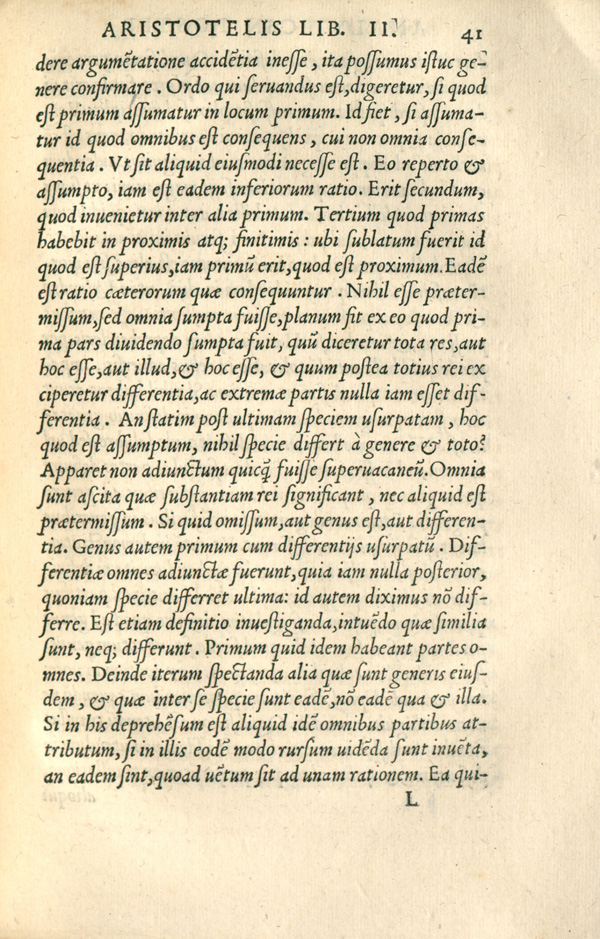 ARISTOTELIS LIB. II. 41
dere argumētatione accidētia inesse, ita possumus istuc ge-
nere confirmare. Ordo qui seruandus est, digeretur, si quod
est primum assumatur in locum primum. Id fiet, si assuma-
tur id quod omnibus est consequens, cui non omnia conse-
quentia. Vt sit aliquid eiusmodi necesse est. Eo reperto &
assumpto, iam est eadem inferiorum ratio. Erit secundum,
quod inuenietur inter alia primum. Tertium quod primas
habebit in proximis atq; finitimis: ubi sublatum fuerit id
quod est superius, iam primū erit, quod est proximum. Eadē
est ratio cæterorum quæ consequuntur. Nihil esse præter-
missum, sed omnia sumpta fuisse, planum fit ex eo quod pri-
ma pars diuidendo sumpta fuit, quū diceretur tota res, aut
hoc esse, aut illud, & hoc esse, & quum postea totius rei ex
ciperetur differentia, ac extremæ partis nulla iam esset dif-
ferentia. An statim post ultimam speciem usurpatam, hoc
quod est assumptum, nihil specie differt à genere & toto?
Apparet non adiunctum quicq̄ fuisse superuacaneū. Omnia
sunt ascita quæ substantiam rei significant, nec aliquid est
prætermissum. Si quid omissum, aut genus est, aut differen-
tia. Genus autem primum cum differentijs usurpatū. Dif-
ferentiæ omnes adiunctæ fuerunt, quia iam nulla posterior,
quoniam specie differret ultima: id autem diximus nō dif-
ferre. Est etiam definitio inuestiganda, intuēdo quæ similia
sunt, neq; differunt. Primum quid idem habeant partes o-
mnes. Deinde iterum spectanda alia quæ sunt generis eius-
dem, & quæ inter se specie sunt eadē, nō eadē qua & illa.
Si in his deprehēsum est aliquid idē omnibus partibus at-
tributum, si in illis eodē modo rursum uidēda sunt inuēta,
an eadem sint, quoad uētum sit ad unam rationem. Ea qui-
L